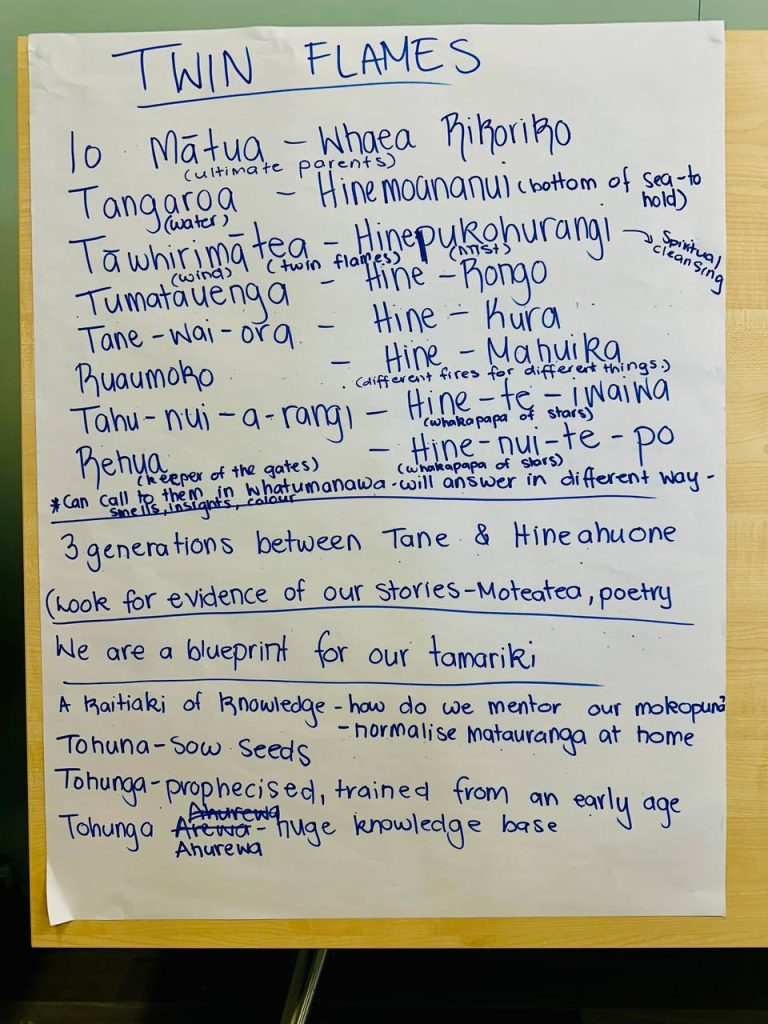 TWIN FLAMES
Io Mātua - Whaea Rikoriko
(ultimate parents)
Tangaroa - Hinemoananui (bottom of sea-to hold)
(water)
Tāwhirimātea - Hinepukohurangi → Spiritual cleansing
(wind) (twin flames) (mist)
Tumatauenga - Hine-Rongo
Tane-wai-ora - Hine-Kura
Ruaumoko - Hine-Mahuika
(different fires for different things.)
Tahu-nui-a-rangi - Hine-te-iwaiwa
(whakapapa of stars)
Rehua - Hine-nui-te-po
(keeper of the gates) (whakapapa of stars)
*Can call to them in whatumanawa - will answer in different way -
smells, insights, colour
3 generations between Tane & Hineahuone
(Look for evidence of our stories-Moteatea, poetry
We are a blueprint for our tamariki
A Kaitiaki of Knowledge - how do we mentor our mokopuna?
- normalise matauranga at home
Tohuna-sow seeds
Tohunga-prophecised, trained from an early age
Ahurewa
Tohunga Arewa - huge knowledge base
Ahurewa